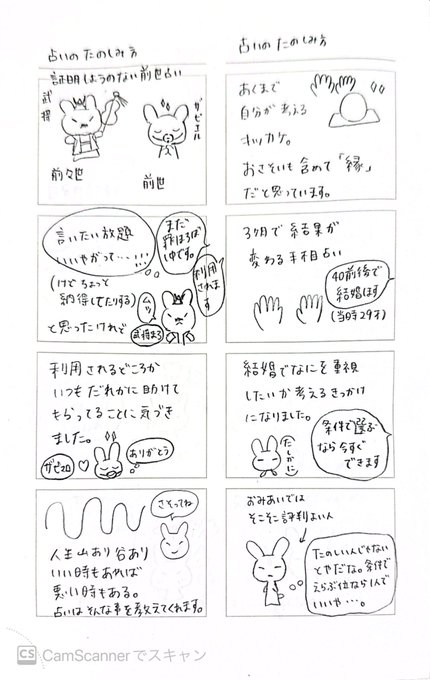 占いのたのしみ方
あくまで
自分が考える
キッカケ。
おさそいも含めて「縁」
だと思っています。
3ヶ月で結果が
変わる手相占い
40前後で
結婚します
(当時29才)
結婚でなにを重視
したいか考えるきっかけ
になりました。
たしかに
条件で選ぶ
なら今すぐ
できます
おみあいでは
そこそこ評判よい人
たのしい人じゃない
とやだな。条件で
えらぶ位なら1人で
いいや…。
占いのたのしみ方
証明しようのない前世占い
武将
ザビエル
前々世
前世
言いたい放題
いいやがって…!!!
まだ
罪ほろぼし
中です。
利用
されま
す
(けどちょっと
納得してたりする)
ムッ
と思ったけれど
武将まろ
利用されるどころか
いつもだれかに助けて
もらってることに気づき
ました。
ありがとう
ザビまろ
さとってね
人生山あり谷あり
いい時もあれば
悪い時もある。
占いはそんな事を教えてくれます。
CS CamScannerでスキャン